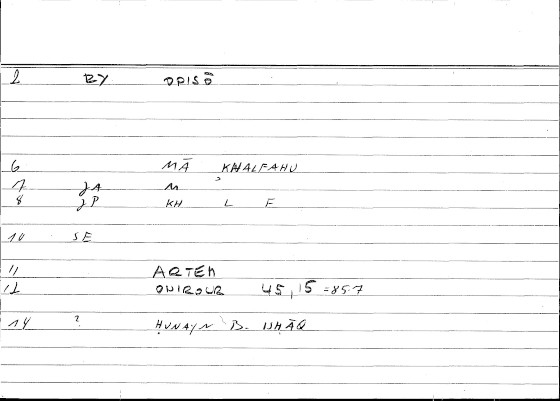 2 RY OPISŌ
6 MĀ KHALFAHU
7 JA M
8 JP KH L F
10 SE
11 ARTEM
12 ONIROCR 45,15 = 85.7
14 ? ḤUNAYN B. ISḤĀQ